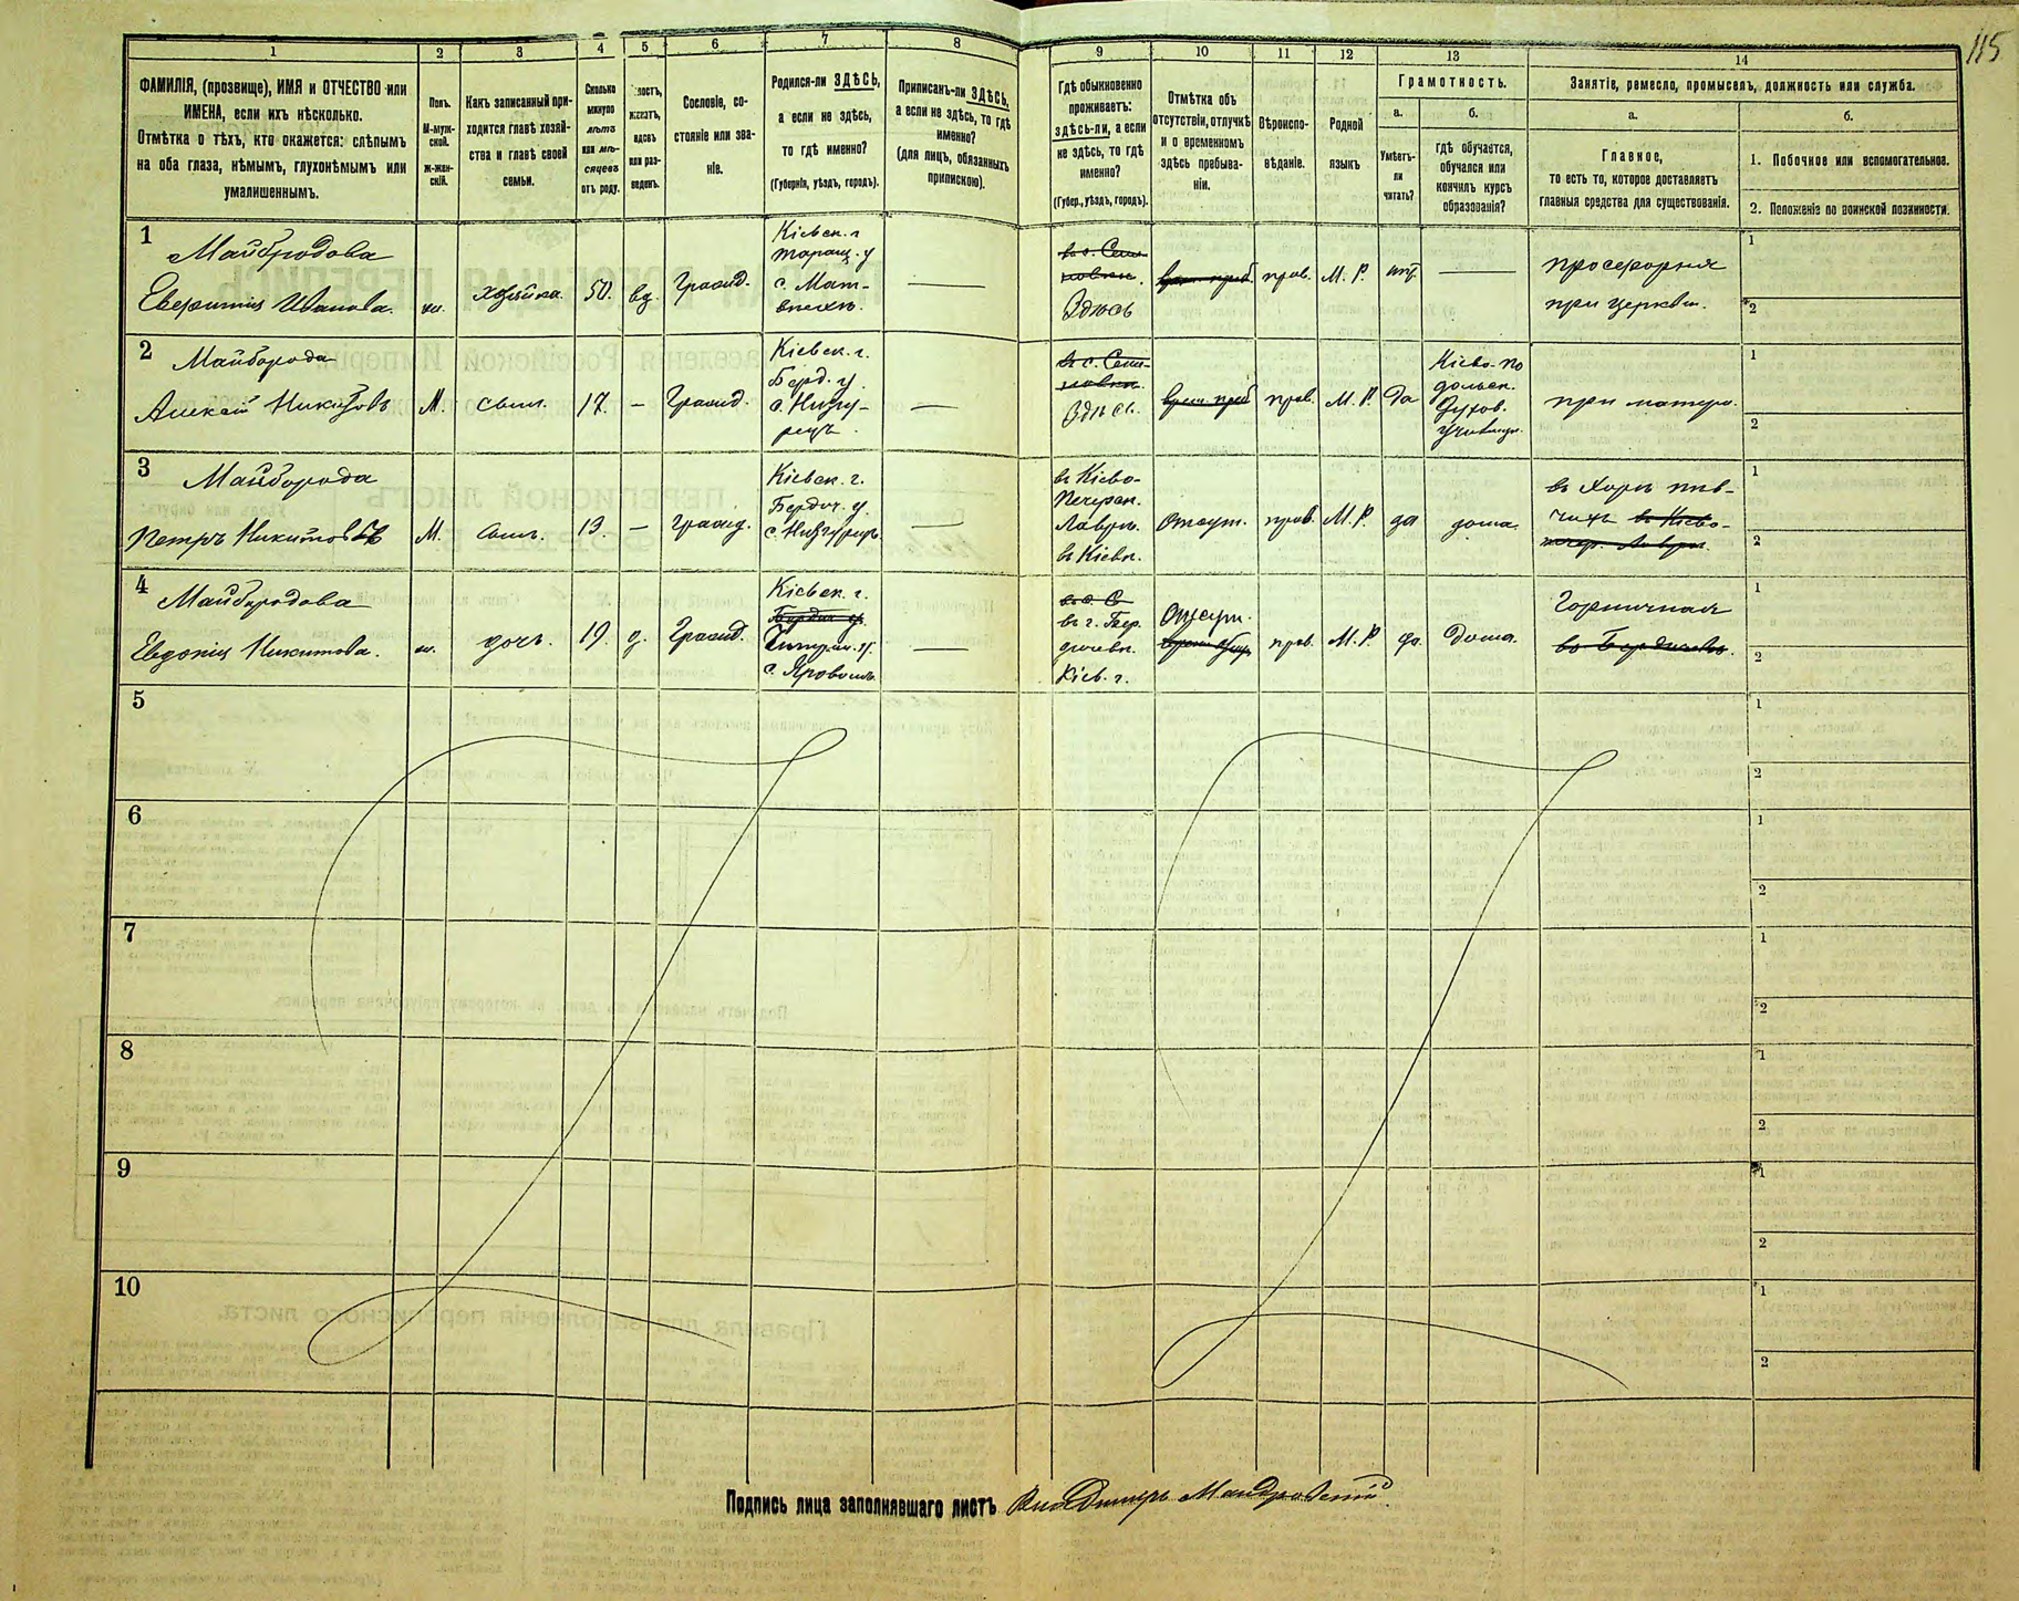 115
1 2 3 4 5 6 7 8 9 10 11 12 13 14
ФАМИЛІЯ, (прозвище), ИМЯ и ОТЧЕСТВО или
ИМЕНА, если ихъ нѣсколько.
Отмѣтка о тѣхъ, кто окажется: слѣпымъ
на оба глаза, нѣмымъ, глухонѣмымъ или
умалишеннымъ.
Полъ.
М-муж-
ской.
ж-жен-
скій.
Какъ записанный при-
ходится главѣ хозяй-
ства и главѣ своей
семьи.
Сколько
минуло
лѣтъ
или мѣ-
сяцевъ
отъ роду.
лостъ,
женатъ,
вдовъ
или раз-
веденъ.
Сословіе, со-
стояніе или зва-
ніе.
Родился-ли ЗДѢСЬ,
а если не здѣсь,
то гдѣ именно?
(Губернія, уѣздъ, городъ).
Приписанъ-ли ЗДѢСЬ,
а если не здѣсь, то гдѣ
именно?
(для лицъ, обязанныхъ
припискою).
Гдѣ обыкновенно
проживаетъ:
здѣсь-ли, а если
не здѣсь, то гдѣ
именно?
(Губер., уѣздъ, городъ).
Отмѣтка объ
отсутствіи, отлучкѣ
и о временномъ
здѣсь пребыва-
ніи.
Вѣроиспо-
вѣданіе.
Родной
языкъ
Грамотность.
а.
Умѣетъ-
ли
читать?
б.
Гдѣ обучается,
обучался или
кончилъ курсъ
образованія?
Занятіе, ремесло, промыселъ, должность или служба.
а.
Главное,
то есть то, которое доставляетъ
главныя средства для существованія.
б.
1. Побочное или вспомогательное.
2. Положеніе по воинской повинности.
1
Майбродова
Иванова.
жн.
Хозяйка.
50.
вд.
Кіевск. г
таращ. у
с. Мат-
Здѣсь
прав.
М. Р.
просфорня
при церкви.
1
2
2
Майборода
Алексѣй Никитовъ
М.
сынъ.
17.
—
Кіевск. г.
Берд. у.
—
Здѣсь.
прав.
М. Р.
Да
Кіево-По
дольск.
Духов.
училищ.
при матери.
1
2
3
Майборода
Петръ Никитовъ
М.
сынъ.
13.
—
Кіевск. г.
Бердич. у.
—
въ Кіево-
Печерск.
Лаврѣ.
въ Кіевѣ.
Отсут.
прав.
М. Р.
да
дома.
въ Хорѣ пѣв-
чихъ въ Кіево-
печер. Лаврѣ.
1
2
4
Майбродова
Евдокія Никитова.
жн.
дочь.
19.
д.
Кіевск. г.
Бердич. у.
—
въ г. Бер.
дичевѣ.
Кіев. г.
Отсут.
прав.
М. Р.
да.
Дома.
Горничная
въ Бердичевѣ.
1
2
5
1
2
6
1
2
7
1
2
8
1
2
9
1
2
10
1
2
Подпись лица заполнявшаго листъ